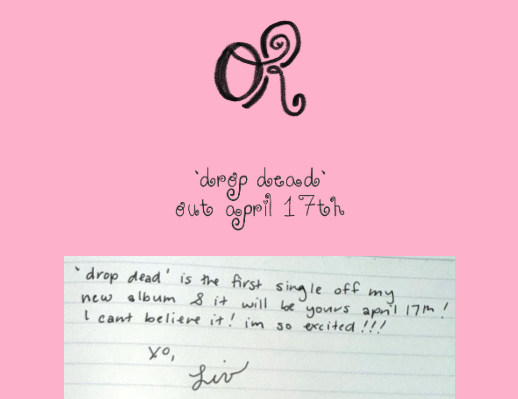 OR
`drop dead`
out april 17th
'drop dead' is the first single off my
new album & it will be yours april 17th!
I cant believe it! im so excited!!!
xo,
Liv